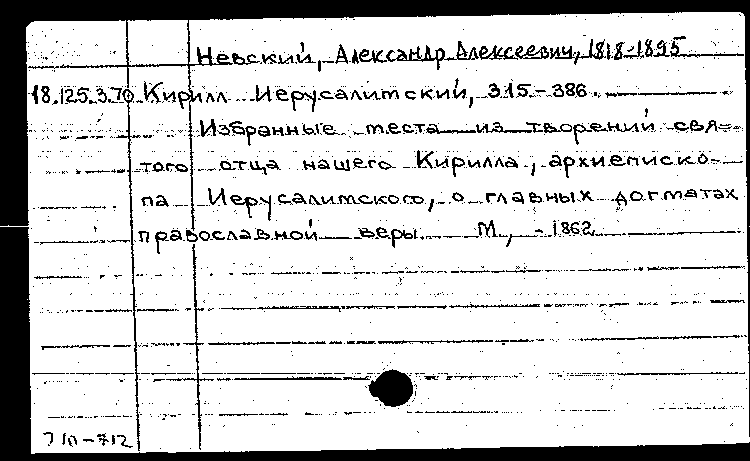 Невский, Александр Алексеевич, 1818-1895
18.125.3.70 Кирилл Иерусалимский, 315-386.
Избранные места из творений свя-
того отца нашего Кирилла, архиеписко-
па Иерусалимского, о главных догматах
православной веры. М., -1862